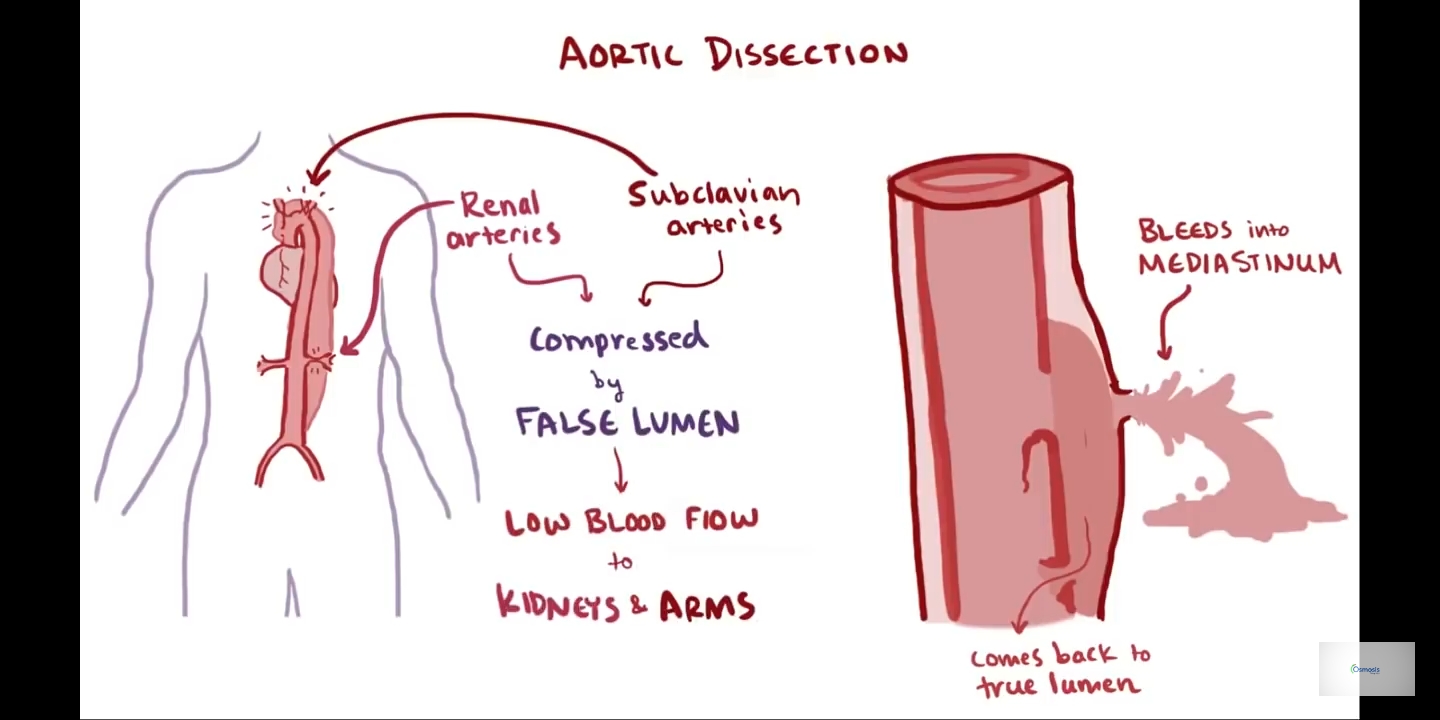 AORTIC DISSECTION
Renal
arteries
Subclavian
arteries
Compressed
by
FALSE LUMEN
LOW BLOOD FLOW
to
KIDNEYS & ARMS
BLEEDS into
MEDIASTINUM
comes back to
true lumen
Osmosis